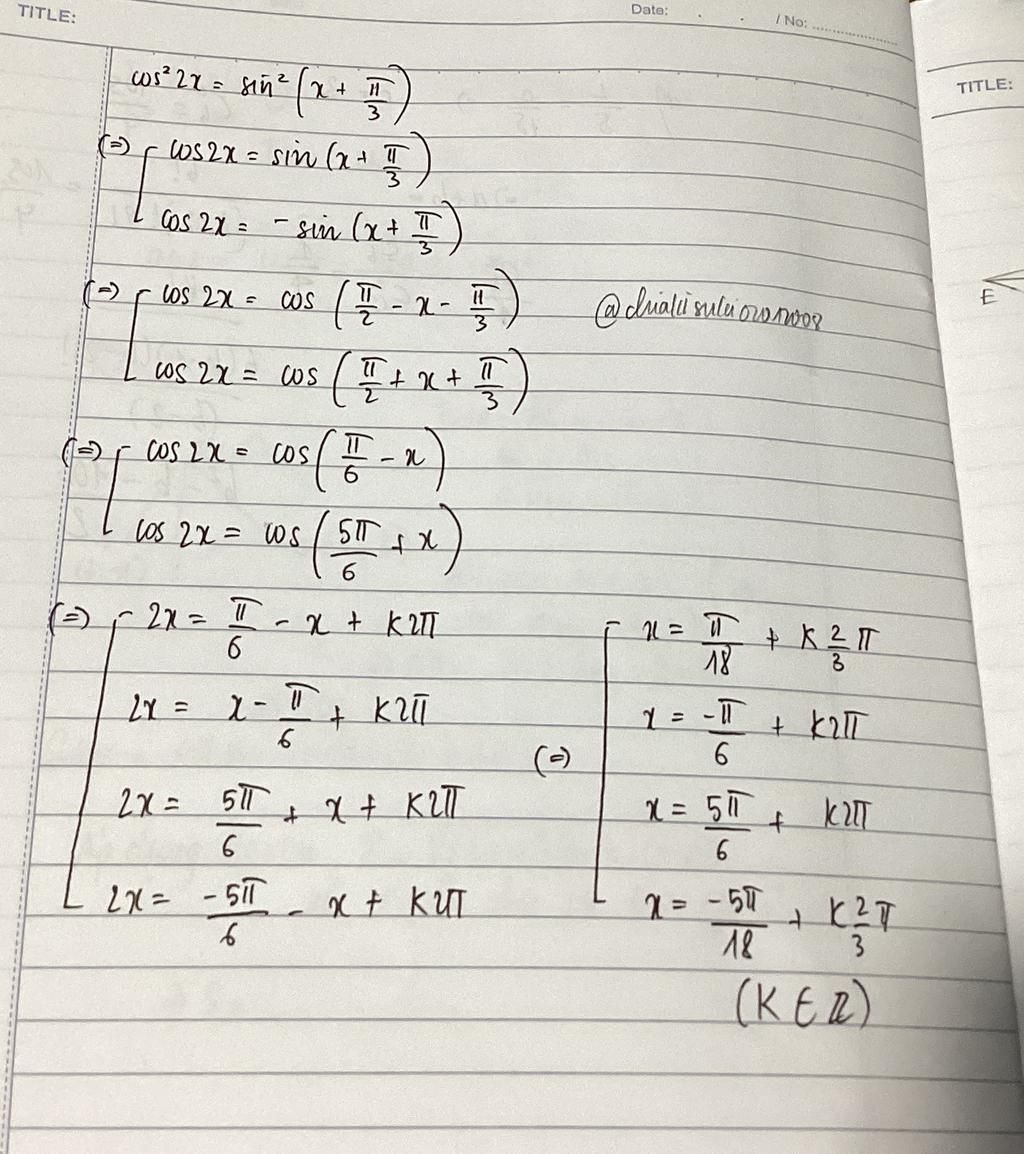 TITLE:
Date: . . / No: ..............
TITLE:
cos² 2x = sin² (x + π/3)
(=) [ cos 2x = sin (x + π/3)
cos 2x = - sin (x + π/3)
(=) [ cos 2x = cos (π/2 - x - π/3)
cos 2x = cos (π/2 + x + π/3)
E
(=) [ cos 2x = cos (π/6 - x)
cos 2x = cos (5π/6 + x)
(=) [ 2x = π/6 - x + K2π
2x = x - π/6 + K2π
2x = 5π/6 + x + K2π
2x = -5π/6 - x + K2π
(=) [ x = π/18 + K 2/3 π
x = -π/6 + K2π
x = 5π/6 + K2π
x = -5π/18 + K 2/3 π
(K ∈ ℤ)